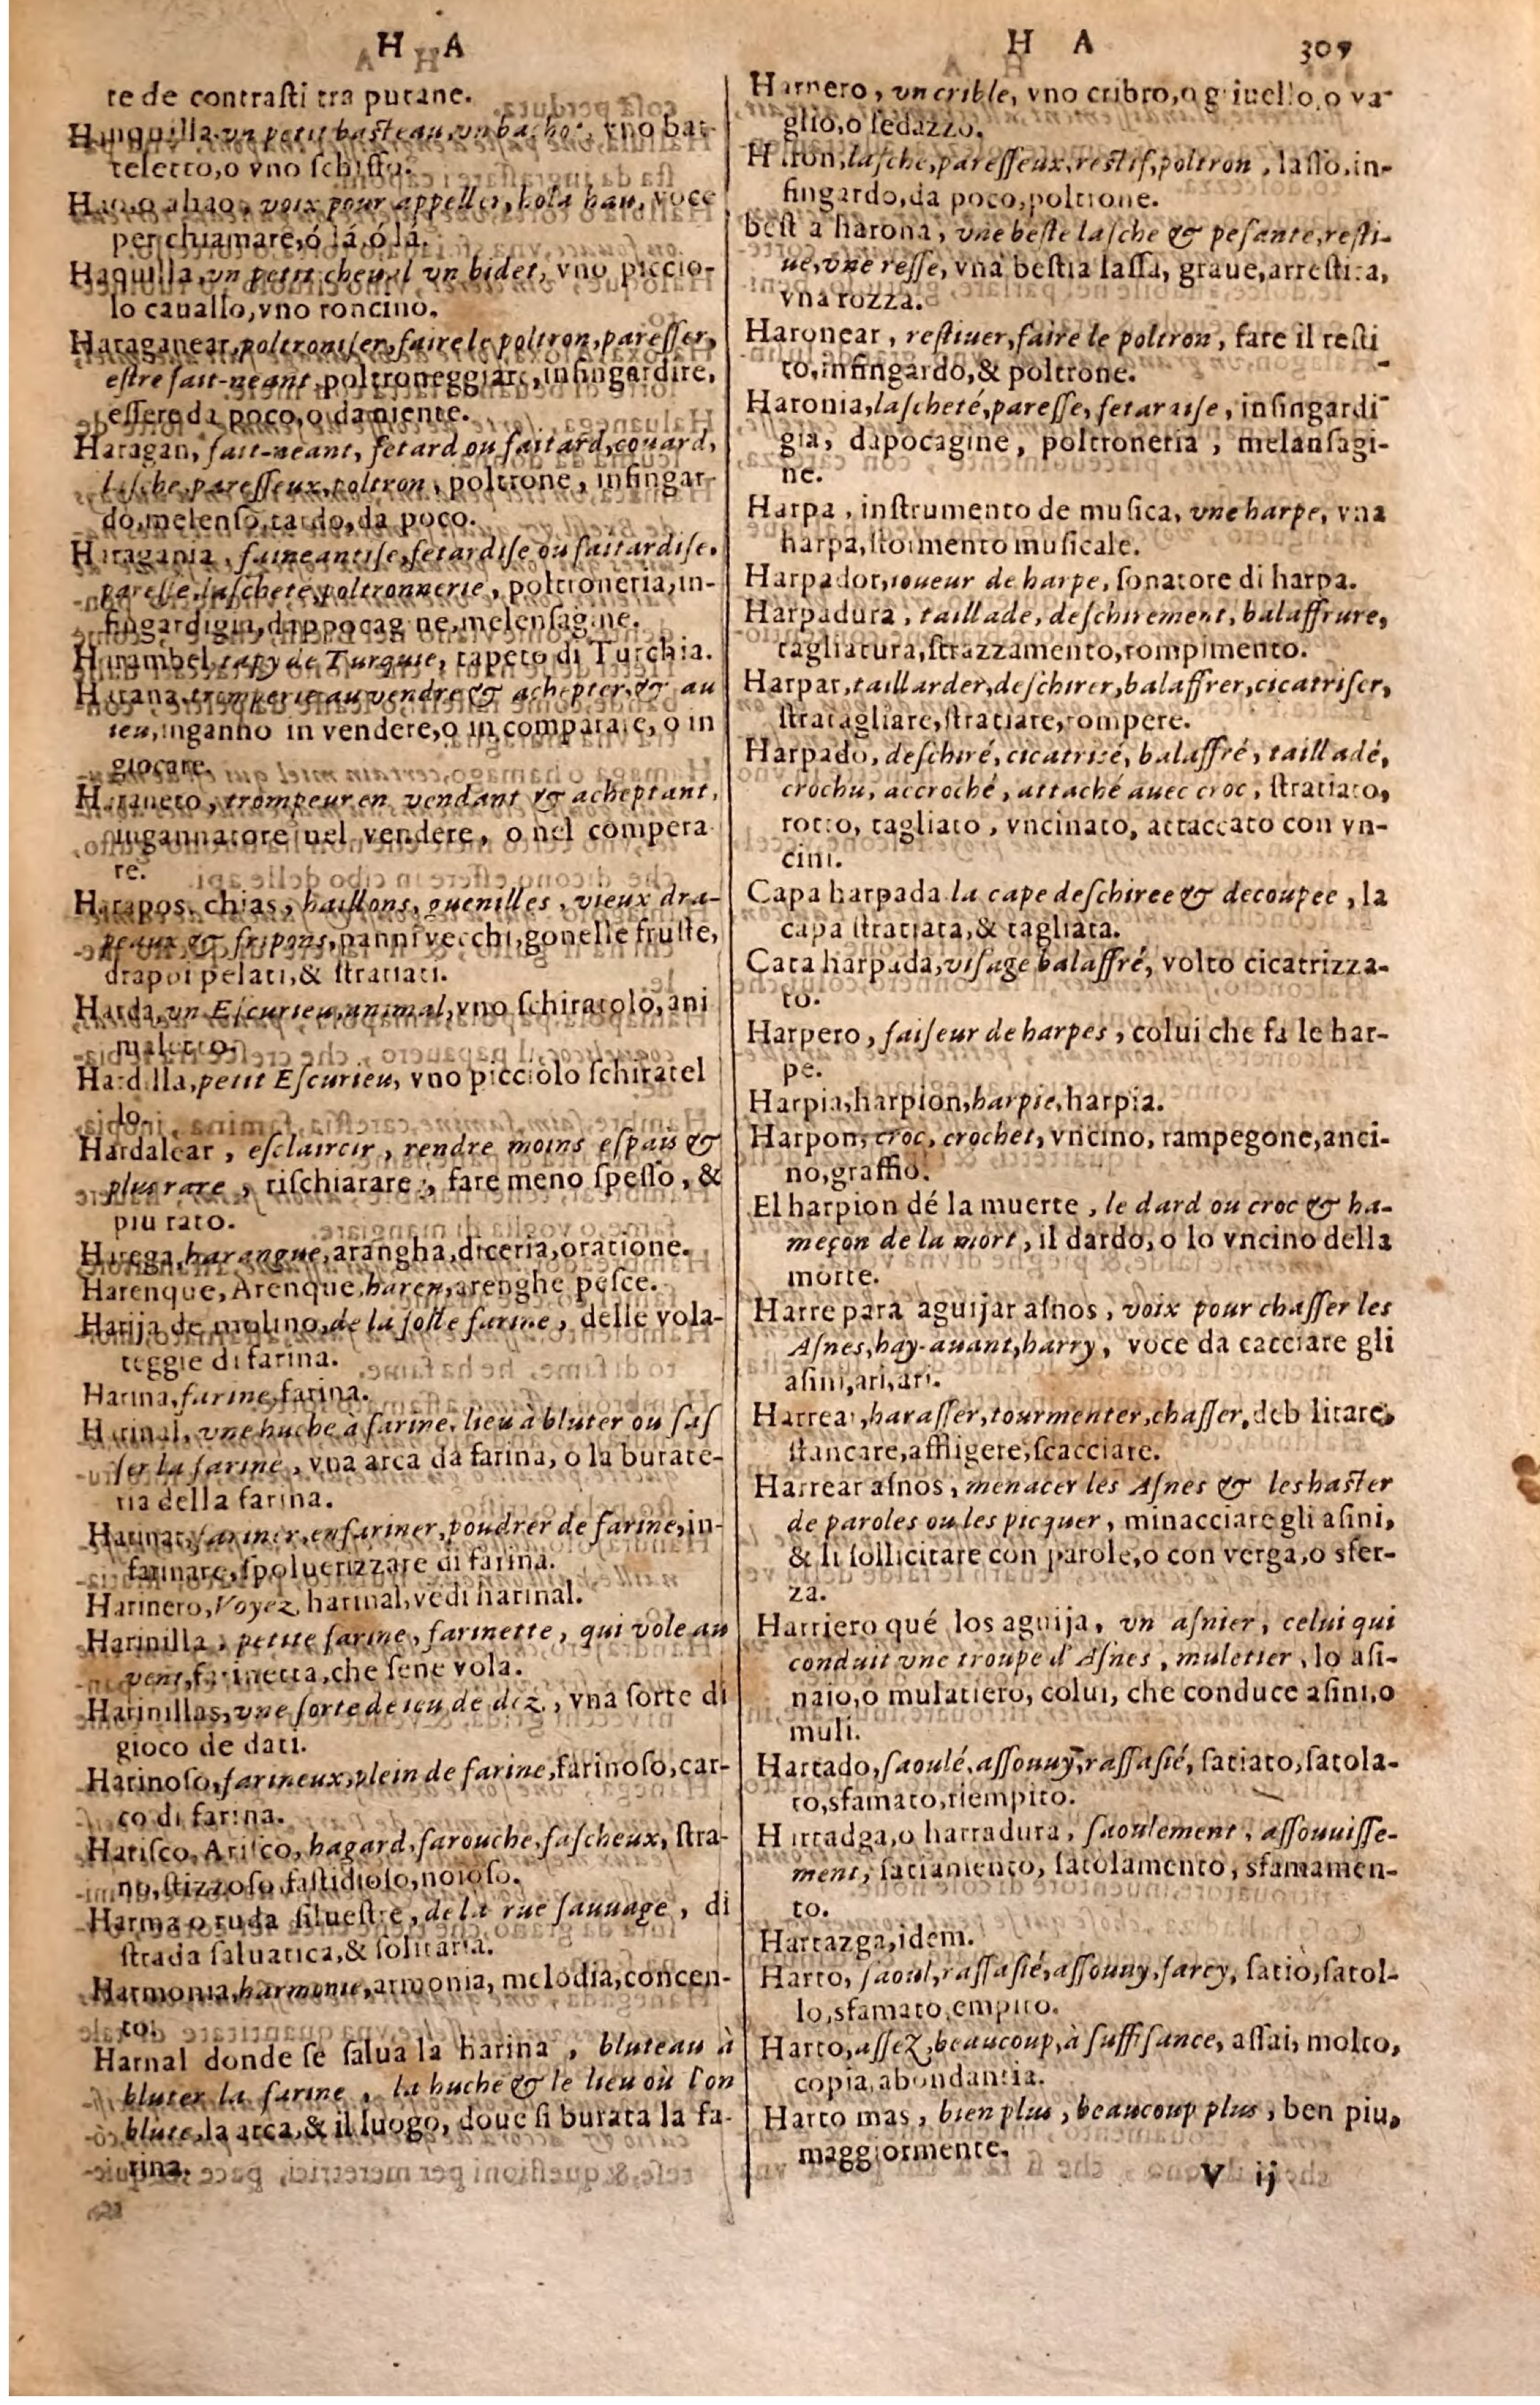 H A
te de contrasti tra putane.
Hanquilla, vn petit basteau, vn bachot, vno bat-
teletto, o vno schiffo.
Hao, o ahao, voix pour appeller, hola hau, voce
per chiamare, ó lá, ó lá.
Haquilla, vn petit cheual vn bidet, vno piccio-
lo cauallo, vno roncino.
Haraganear, poltroniser, faire le poltron, paresser,
estre fait-neant, poltroneggiare, infingardire,
essere da poco, o da niente.
Haragan, fait-neant, fetard ou faitard, couard,
lasche, paresseux, poltron, poltrone, infingar-
do, melenso, tardo, da poco.
Haragania, faineantise, fetardise ou faitardise,
paresse, lascheté, poltronnerie, poltroneria, in-
fingardigia, dappocagine, melensagine.
Harambel, tapy de Turquie, tapeto di Turchia.
Harana, tromperie au vendre & achepter, & au
ieu, inganno in vendere, o in comparare, o in
giocare.
Haraneto, trompeur en vendant & acheptant,
ingannatore nel vendere, o nel compera
re.
Harapos, chias, haillons, guenilles, vieux dra-
peaux & fripons, panni vecchi, gonelle fruste,
drapoi pelati, & stratiati.
Harda, vn Escurieu, animal, vno schiratolo, ani
maletto.
Hardilla, petit Escurieu, vno picciolo schiratel
lo.
Hardalear, esclaircir, rendre moins espais &
plus rare, rischiarare, fare meno spesso, &
piu raro.
Harega, harangue, arangha, diceria, oratione.
Harenque, Arenque, haren, arenghe pesce.
Harija de molino, de la folle farine, delle vola-
teggie di farina.
Harina, farine, farina.
Harinal, vne huche à farine, lieu à bluter ou sas
ser la farine, vna arca da farina, o la burate-
ria della farina.
Harinar, fariner, enfariner, poudrer de farine, in-
farinare, spoluerizzare di farina.
Harinero, Voyez harinal, vedi harinal.
Harinilla, petite farine, farinette, qui vole au
vent, farinetta, che sene vola.
Harinillas, vne sorte de ieu de dez, vna sorte di
gioco de dati.
Harinoso, farineux, plein de farine, farinoso, car-
co di farina.
Harisco, Arisco, hagard, farouche, fascheux, stra-
no, stizzoso, fastidioso, noioso.
Harma o ruda siluestre, de la rue sauuage, di
strada saluatica, & solitaria.
Harmonia, harmonie, armonia, melodia, concen-
to.
Harnal donde se salua la harina, bluteau à
bluter la farine, la huche & le lieu où l'on
blute, la arca, & il luogo, doue si burata la fa-
rina.
H A 307
Harnero, vn crible, vno cribro, o griuello, o va-
glio, o sedazzo.
Haron, lasche, paresseux, restif, poltron, lasso, in-
fingardo, da poco, poltrone.
bestia harona, vne beste lasche & pesante, resti-
ue, vne resse, vna bestia lassa, graue, arrestita,
vna rozza.
Haronear, restiuer, faire le poltron, fare il resti
to, infingardo, & poltrone.
Haronia, lascheté, paresse, fetardise, infingardi-
gia, dapocagine, poltroneria, melansagi-
ne.
Harpa, instrumento de musica, vne harpe, vna
harpa, stormento musicale.
Harpador, ioueur de harpe, sonatore di harpa.
Harpadura, taillade, deschirement, balaffrure,
tagliatura, strazzamento, rompimento.
Harpar, taillarder, deschirer, balaffrer, cicatriser,
stratagliare, stratiare, rompere.
Harpado, deschiré, cicatrisé, balaffré, tailladé,
crochu, accroché, attaché auec croc, stratiato,
rotto, tagliato, vncinato, attaccato con vn-
cini.
Capa harpada la cape deschiree & decoupee, la
capa stratiata, & tagliata.
Cara harpada, visage balaffré, volto cicatrizza-
to.
Harpero, faiseur de harpes, colui che fa le har-
pe.
Harpia, harpion, harpie, harpia.
Harpon, croc, crochet, vncino, rampegone, anci-
no, graffio.
El harpion dé la muerte, le dard ou croc & ha-
meçon de la mort, il dardo, o lo vncino della
morte.
Harre para aguijar asnos, voix pour chasser les
Asnes, hay-auant, harry, voce da cacciare gli
asini, ari, ari.
Harrear, harasser, tourmenter, chasser, debilitare,
stancare, affligere, scacciare.
Harrear asnos, menacer les Asnes & les haster
de paroles ou les picquer, minacciare gli asini,
& li sollicitare con parole, o con verga, o sfer-
za.
Harriero qué los aguija, vn asnier, celui qui
conduit vne troupe d'Asnes, muletier, lo asi-
naio, o mulatiero, colui, che conduce asini, o
muli.
Hartado, saoulé, assouuy, rassasié, satiato, satola-
to, sfamato, riempito.
Hartadga, o harradura, saoulement, assouuisse-
ment, satiamento, satolamento, sfamamen-
to.
Hartazga, idem.
Harto, saoul, rassasié, assouuy, farcy, satiò, satol-
lo, sfamato, empito.
Harto, assez, beaucoup, à suffisance, assai, molto,
copia, abondantia.
Harto mas, bien plus, beaucoup plus, ben piu,
maggiormente.
V ij